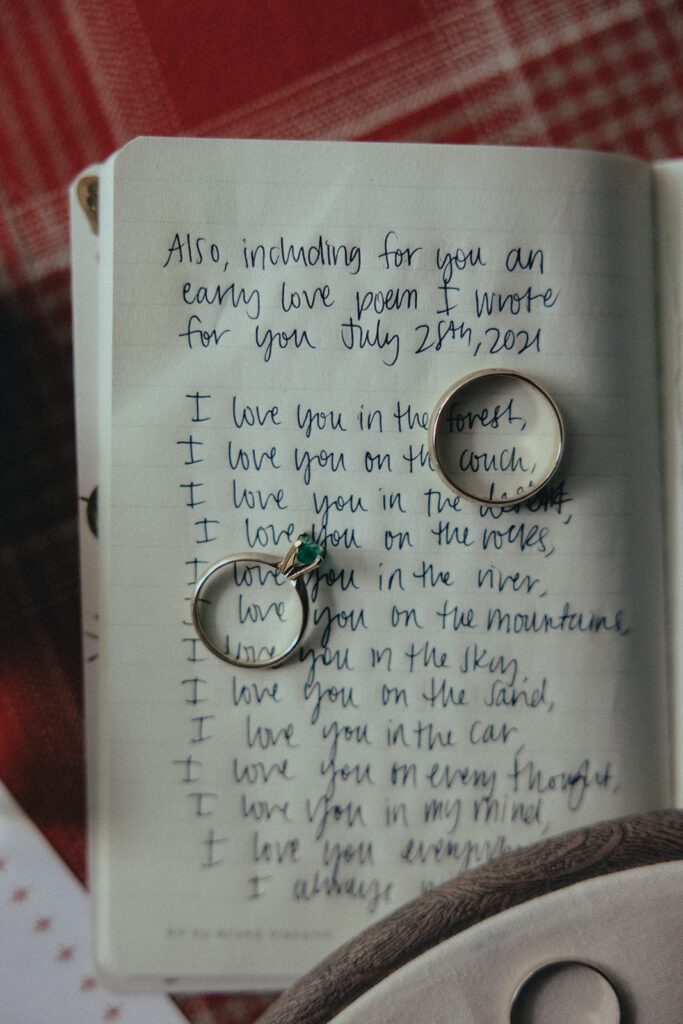 Also, including for you an
early love poem I wrote
for you July 28th, 2021
I love you in the forest,
I love you on the couch,
I love you in the desert,
I love you on the rocks,
I love you in the river,
I love you on the mountains,
I love you in the sky
I love you on the sand,
I love you in the car,
I love you on every thought,
I love you in my mind,
I love you
I always